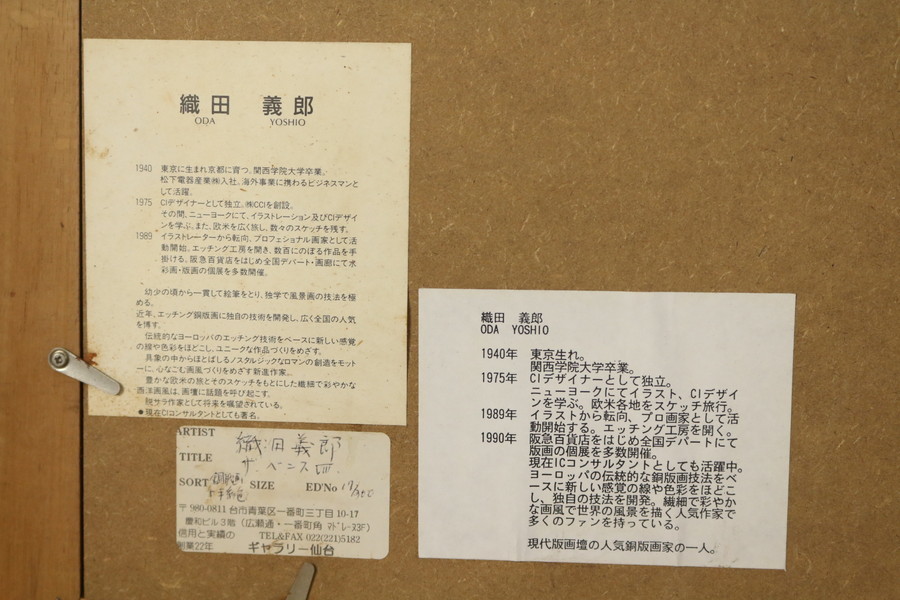 織田 義郎
ODA YOSHIO
1940 東京に生まれ京都に育つ。関西学院大学卒業。
松下電器産業㈱入社、海外事業に携わるビジネスマンと
して活躍。
1975 CIデザイナーとして独立。㈱CCIを創設。
その間、ニューヨークにて、イラストレーション及びCIデザイ
ンを学ぶ。また、欧米を広く旅し、数々のスケッチを残す。
1989 イラストレーターから転向、プロフェショナル画家として活
動開始。エッチング工房を開き、数百にのぼる作品を手
掛ける。阪急百貨店をはじめ全国デパート・画廊にて水
彩画・版画の個展を多数開催。
幼少の頃から一貫して絵筆をとり、独学で風景画の技法を極
める。
近年、エッチング銅版画に独自の技術を開発し、広く全国の人気
を博す。
伝統的なヨーロッパのエッチング技術をベースに新しい感覚
の線や色彩をほどこし、ユニークな作品づくりをめざす。
具象の中からほとばしるノスタルジックなロマンの創造をモット
ーに、心なごむ画風づくりをめざす新進作家。
豊かな欧米の旅とそのスケッチをもとにした繊細で彩やかな
西洋画風は、画壇に話題を呼び起こす。
脱サラ作家として将来を嘱望されている。
●現在CIコンサルタントとしても著名。
ARTIST 織田義郎
TITLE ザ・ベニスⅢ
SORT 銅版画 手彩色 SIZE ED'No /350
〒980-0811 台市青葉区一番町三丁目10-17
慶和ビル3階(広瀬通・一番町角 ﾏﾄﾞﾚｰﾇ3F)
信用と実績の TEL&FAX 022(221)5182
創業22年 ギャラリー仙台
織田 義郎
ODA YOSHIO
1940年 東京生れ。
関西学院大学卒業。
1975年 CIデザイナーとして独立。
ニューヨークにてイラスト、CIデザイ
ンを学ぶ。欧米各地をスケッチ旅行。
1989年 イラストから転向、プロ画家として活
動開始する。エッチング工房を開く。
1990年 阪急百貨店をはじめ全国デパートにて
版画の個展を多数開催。
現在ICコンサルタントとしても活躍中。
ヨーロッパの伝統的な銅版画技法をベ
ースに新しい感覚の線や色彩をほどこ
し、独自の技法を開発。繊細で彩やか
な画風で世界の風景を描く人気作家で
多くのファンを持っている。
現代版画壇の人気銅版画家の一人。